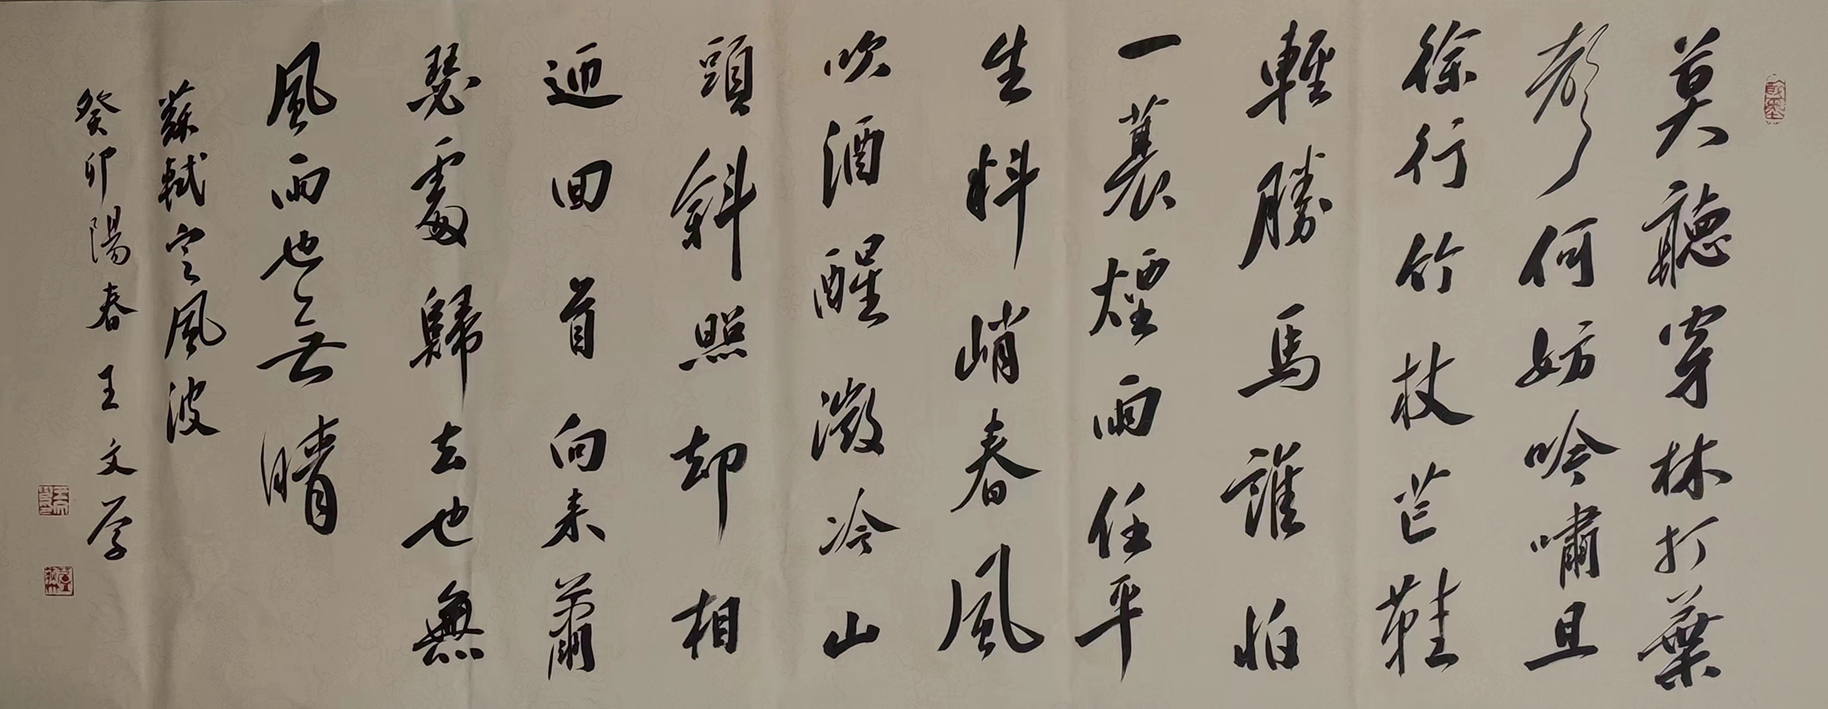 莫聽穿林打葉
聲何妨吟嘯且
徐行竹杖芒鞋
輕勝馬誰怕
一蓑煙雨任平
生料峭春風
吹酒醒微冷山
頭斜照却相
迎回首向来蕭
瑟處歸去也無
風雨也无晴
蘇軾定風波
癸卯陽春王文学